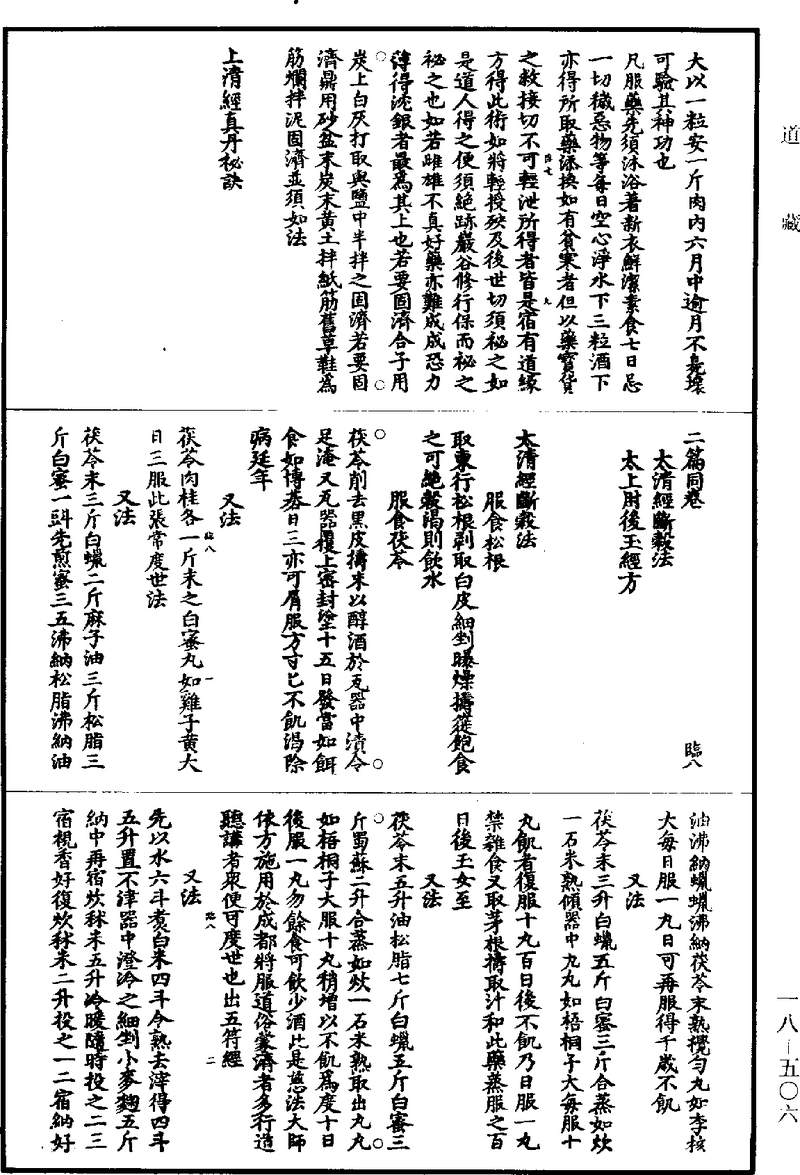 道藏
大以一粒安一斤肉內六月中逾月不臭壞
可驗其神功也
凡服藥先須沐浴著新衣鮮潔素食七日忌
一切穢惡物等每日空心淨水下三粒酒下
亦得所取藥添換如有貧寒者但以藥寶貨
之救接切不可輕泄所得者皆是宿有道緣
方得此術如將輕授殃及後世切須祕之如
是道人得之便須絕跡巖谷修行保而祕之
祕之也如若雌雄不真好藥亦難成成恐力
薄得沈銀者最為其上也若要固濟合子用
炭上白灰打取與鹽中半拌之固濟若要固
濟鼎用砂盆末炭末黃土拌紙筋舊草鞋為
筋爛拌泥固濟並須如法
上清經真丹祕訣
二篇同卷 臨八
太清經斷穀法
太上肘後玉經方
太清經斷穀法
服食松根
取東行松根剝取白皮細剉曝燥擣篵飽食
之可絕穀渴則飲水
服食茯苓
茯苓削去黑皮擣末以醇酒於瓦器中漬令
足淹又瓦器覆上密封塗十五日發當如餌
食如博棊日三亦可屑服方寸匕不飢渴除
病延年
又法
茯苓肉桂各一斤末之白蜜丸如雞子黃大
日三服此張常度世法
又法
茯苓末三斤白蠟二斤麻子油三斤松脂三
斤白蜜一㪷先煎蜜三五沸納松脂沸納油
油沸納蠟蠟沸納茯苓末熟攪勻丸如李核
大每日服一丸日可再服得千歲不飢
又法
茯苓末三升白蠟五斤白蜜三斤合蒸如炊
一石米熟傾器中丸丸如梧桐子大每服十
丸飢者復服十丸百日後不飢乃日服一丸
禁雜食又取茅根擣取汁和此藥蒸服之百
日後玉女至
又法
茯苓末五升油松脂七斤白蠟五斤白蜜三
斤蜀蘇二升合蒸如炊一石米熟取出丸丸
如梧桐子大服十丸稍增以不飢為度十日
後服一丸勿餘食可飲少酒此是慈法大師
依方施用於成都將服道俗蒙濟者多行造
聽講者眾便可度世也出五符經
又法
先以水六斗煑白米四斗令熟去滓得四斗
五升置不津器中澄冷之細剉小麥麴五斤
納中再宿炊秫米五升冷暖隨時投之二三
宿視香好復炊秫米二升投之一二宿納好
一八—五〇六